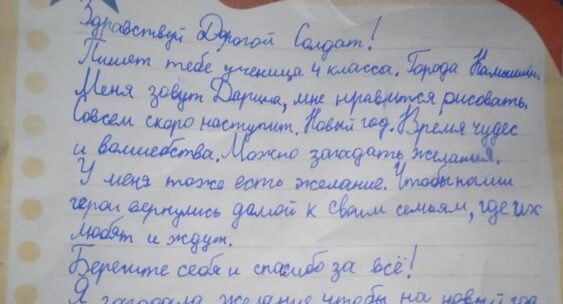 Здравствуй Дорогой Солдат!
Пишет тебе ученица 4 класса. Города Камышин.
Меня зовут Дарина, мне нравится рисовать.
Совсем скоро наступит. Новый год. Время чудес
и волшебства. Можно загадать желания.
У меня тоже есть желание. Чтобы наши
герои вернулись домой к своим семьям, где их
любят и ждут.
Берегите себя и спасибо за всё!
Я загадала желание чтобы на новый год